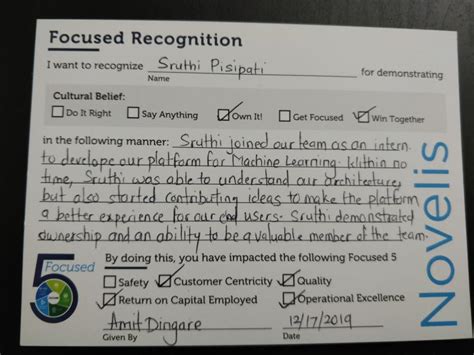 Focused Recognition
I want to recognize Sruthi Pisipati for demonstrating
Name
Cultural Belief:
Do It Right Say Anything Own It! Get Focused Win Together
in the following manner: Sruthi joined our team as an intern
to develope our platform for Machine Learning. Within no
time, Sruthi was able to understand our architecture,
but also started contributing ideas to make the platform
a better experience for our end users. Sruthi demonstrated
ownership and an ability to be a valuable member of the team.
By doing this, you have impacted the following Focused 5
Focused
5
Safety Customer Centricity Quality
Return on Capital Employed Operational Excellence
Amit Dingare 12/17/2019
Given By Date
Novelis